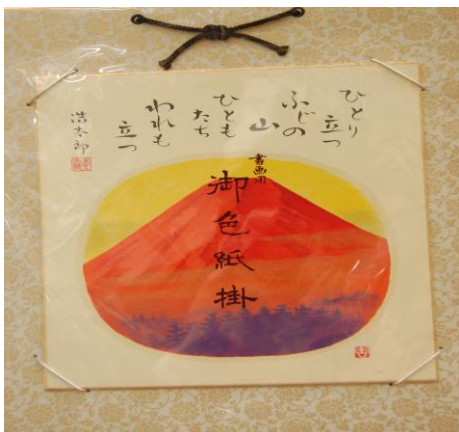 ひとり
立つ
ふじの
山
ひとも
たち
われも
立つ
浩太郎
書画用
御色紙掛